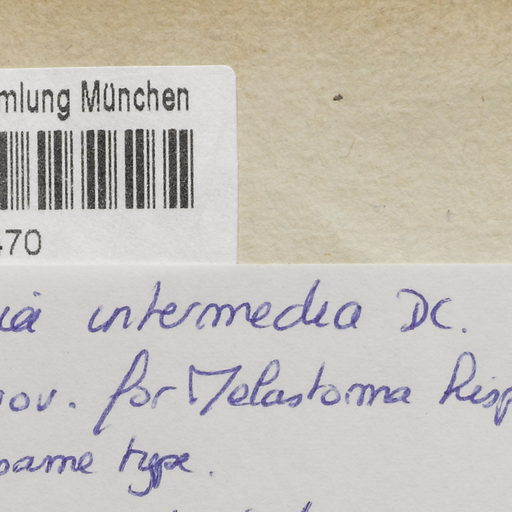 mlung München
470
ia intermedia DC.
nov. for Melastoma hisp
same type.